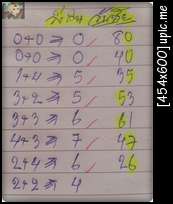 0+0 ⇒ 0 80
0+0 ⇒ 0 40
1+4 ⇒ 5 35
3+2 ⇒ 5 53
3+3 ⇒ 6 61
4+3 ⇒ 7 47
2+4 ⇒ 6 26
2+2 ⇒ 4
[454x600] upic.me